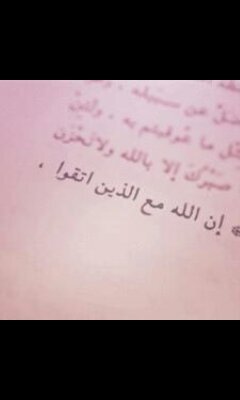 ضل عن سبيله ،
ما عوقبتم به ، ولئن
صبرك إلا بالله ولا تحزن
إن الله مع الذين اتقوا ،